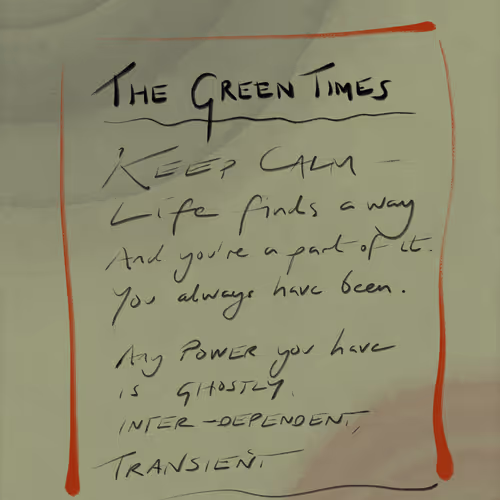 THE GREEN TIMES
KEEP CALM –
Life finds a way
And you're a part of it.
You always have been.
Any POWER you have
is GHOSTLY,
INTER-DEPENDENT,
TRANSIENT